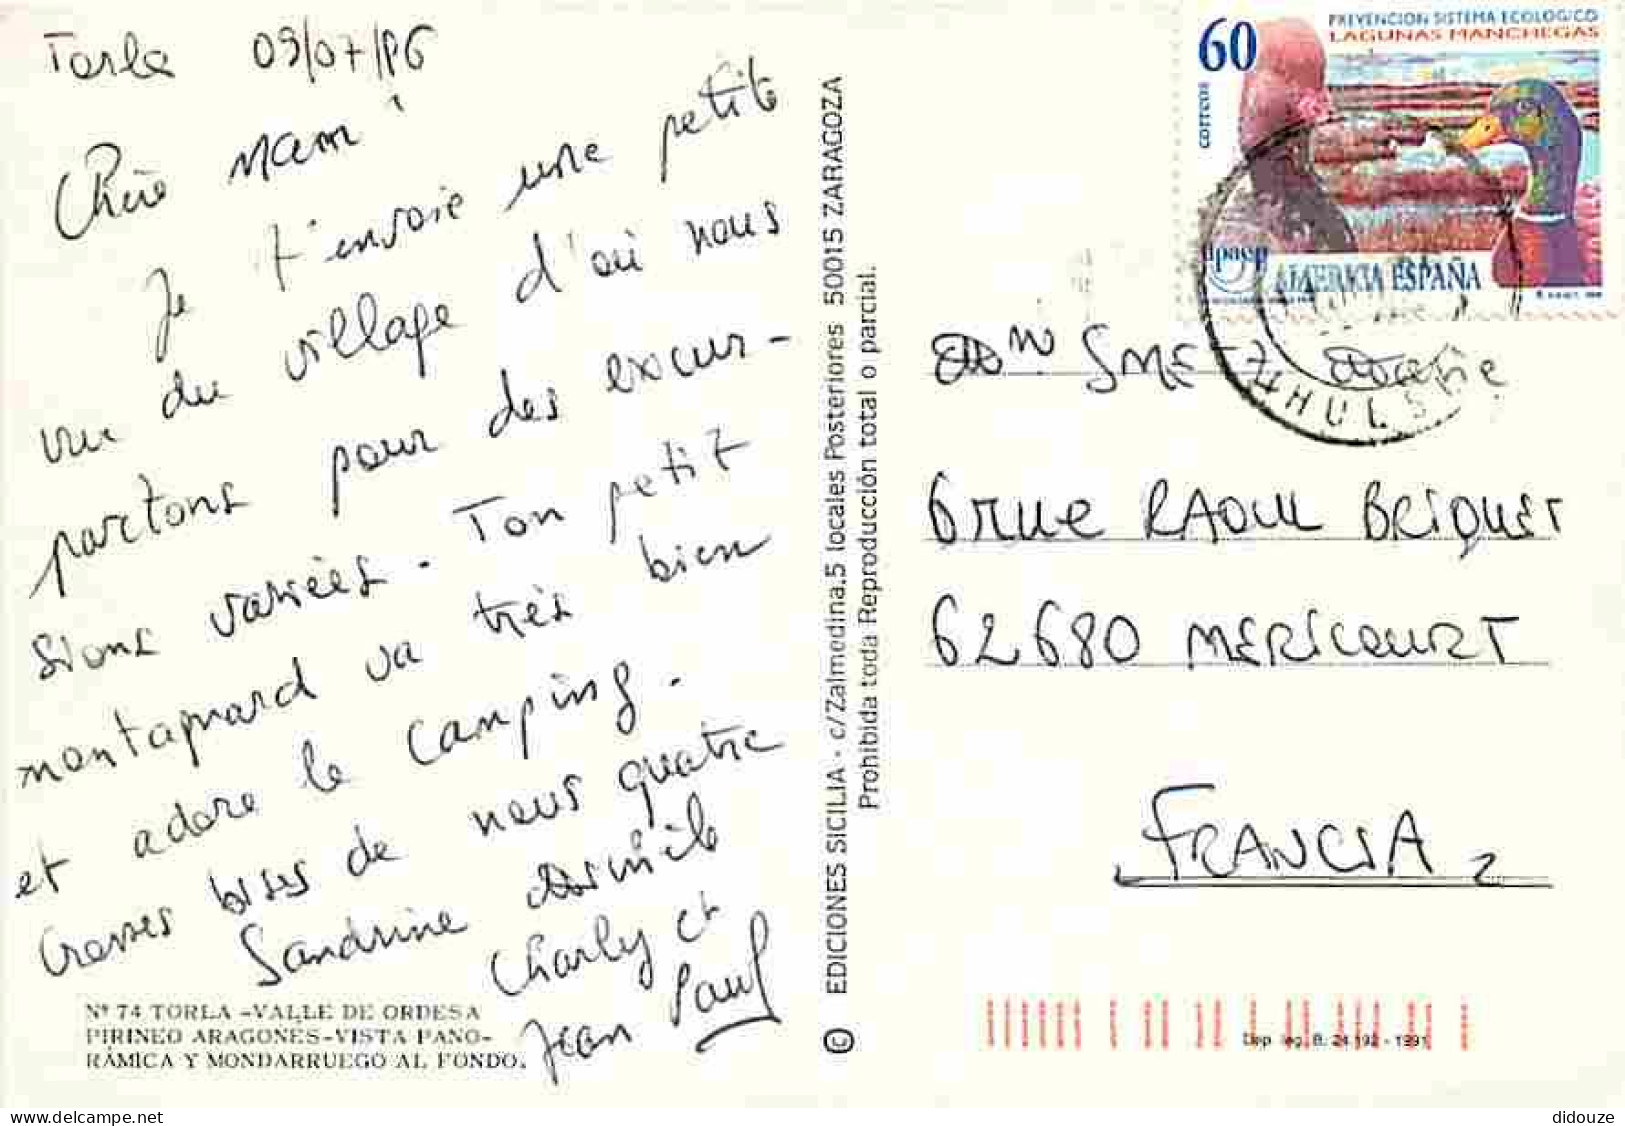 Torla 09/07/96
Chère Mami
Je t'envoie une petite
vue du village d'où nous
partons pour des excur-
sions variées. Ton petit
montagnard va très bien
et adore le camping.
Grosses bises de nous quatre
Sandrine
Charly et
Jean Paul
Nº 74 TORLA -VALLE DE ORDESA
PIRINEO ARAGONES-VISTA PANO-
RÁMICA Y MONDARRUEGO AL FONDO.
© EDICIONES SICILIA - c/Zalmedina.5 locales Posteriores 50015 ZARAGOZA
Prohibida toda Reproducción total o parcial.
60
correos
PREVENCION SISTEMA ECOLOGICO
LAGUNAS MANCHEGAS
upaep
AMERICA ESPAÑA
SMETZ
6 rue RAOUL BRIQUET
62680 MERICOURT
FRANCIA
Dep. leg. B. 24.192 - 1991
didouze